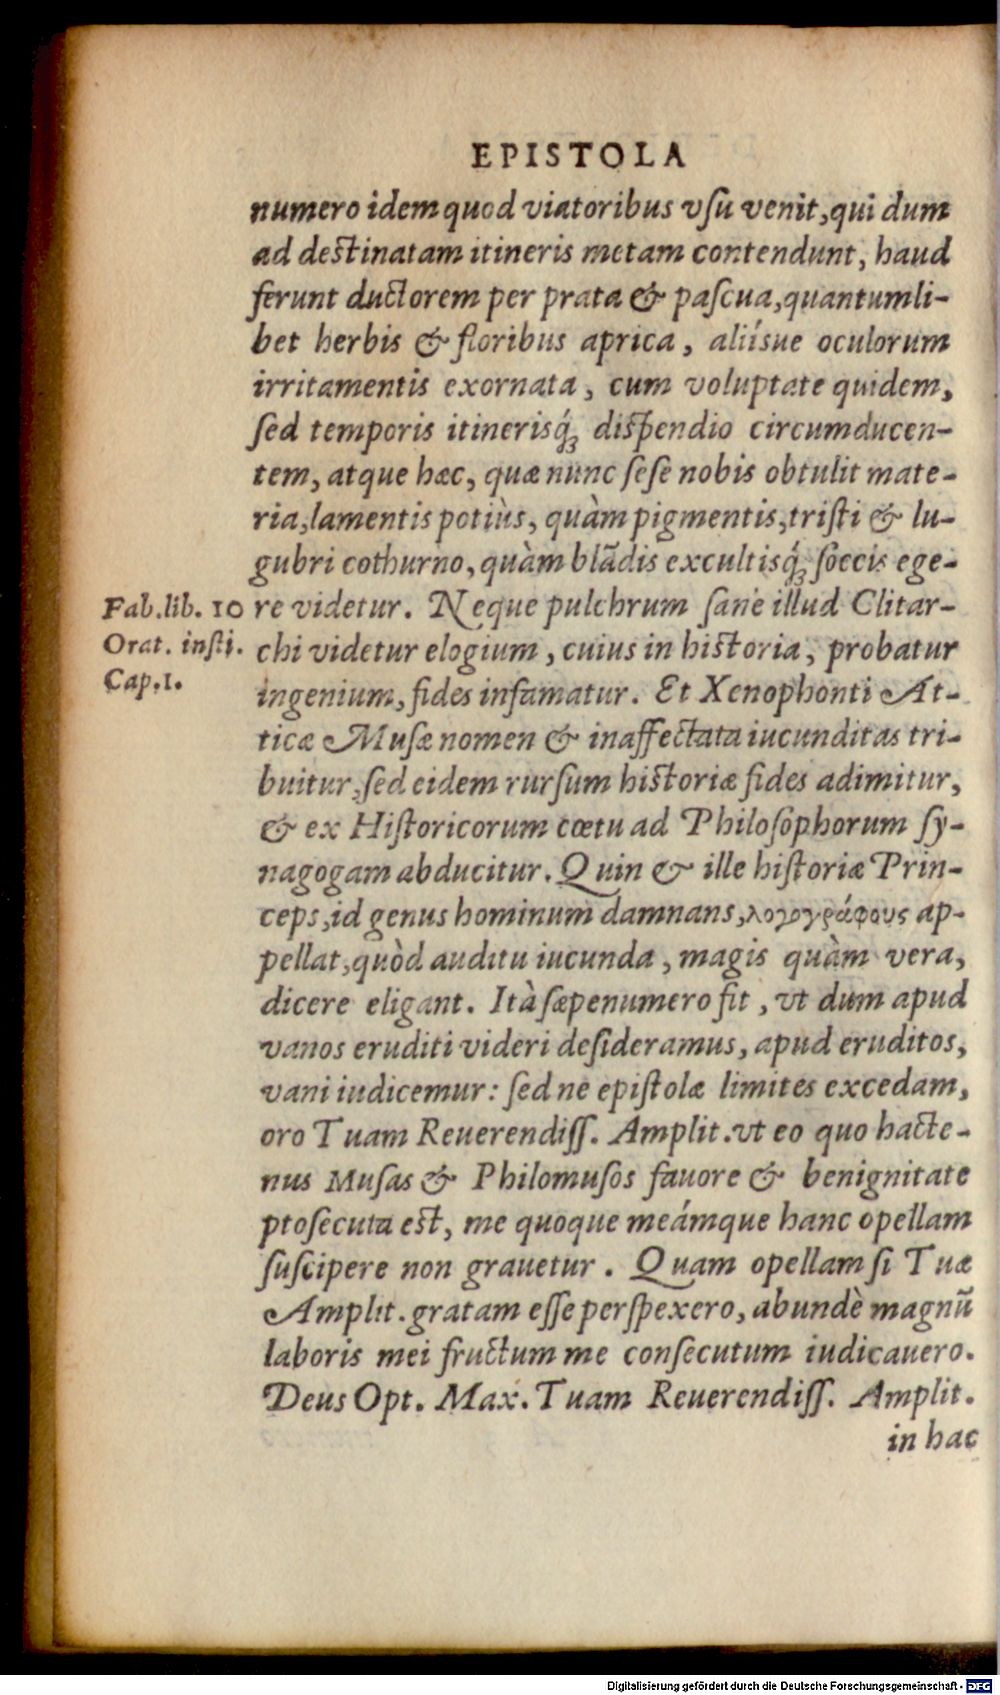 EPISTOLA
numero idem quod viatoribus vſu venit, qui dum
ad destinatam itineris metam contendunt, haud
ferunt ductorem per prata & paſcua, quantumli-
bet herbis & floribus aprica, aliísue oculorum
irritamentis exornata, cum voluptate quidem,
ſed temporis itinerisq́ꝫ dispendio circumducen-
tem, atque hæc, quæ nunc ſeſe nobis obtulit mate-
ria, lamentis potiùs, quàm pigmentis, triſti & lu-
gubri cothurno, quàm blādis excultisq́ꝫ ſoccis ege-
Fab. lib. 10
Orat. inſti.
Cap. 1.
re videtur. Neque pulchrum ſane illud Clitar-
chi videtur elogium, cuius in historia, probatur
ingenium, fides infamatur. Et Xenophonti At-
ticæ Muſæ nomen & inaffectata iucunditas tri-
buitur, ſed eidem rurſum historiæ fides adimitur,
& ex Hiſtoricorum cœtu ad Philoſophorum ſy-
nagogam abducitur. Quin & ille hiſtoriæ Prin-
ceps, id genus hominum damnans, λογογράφους ap-
pellat, quòd auditu iucunda, magis quàm vera,
dicere eligant. Ità ſæpenumero fit, vt dum apud
vanos eruditi videri deſideramus, apud eruditos,
vani iudicemur: ſed ne epiſtolæ limites excedam,
oro Tuam Reuerendiſſ. Amplit. vt eo quo hacte-
nus Muſas & Philomuſos fauore & benignitate
ptoſecuta est, me quoque meámque hanc opellam
ſuſcipere non grauetur. Quam opellam ſi Tuæ
Amplit. gratam eſſe perſpexero, abundè magnū
laboris mei fructum me conſecutum iudicauero.
Deus Opt. Max. Tuam Reuerendiſſ. Amplit.
in hac
Digitalisierung gefördert durch die Deutsche Forschungsgemeinschaft - DFG